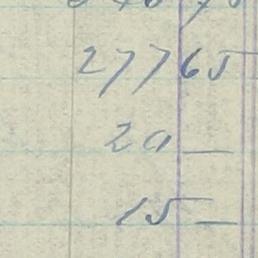 277 65
20 —
15 —